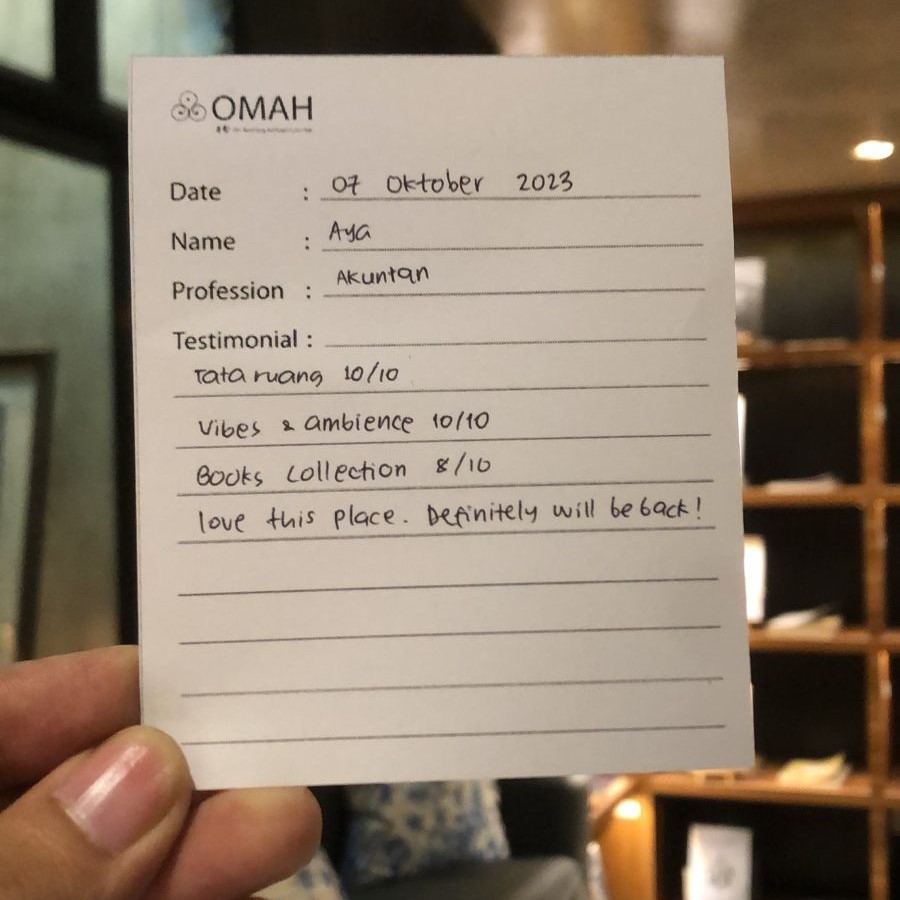 OMAH
Date : 07 Oktober 2023
Name : Aya
Profession : Akuntan
Testimonial :
Tata ruang 10/10
Vibes & ambience 10/10
Books collection 8/10
love this place. Definitely will be back!